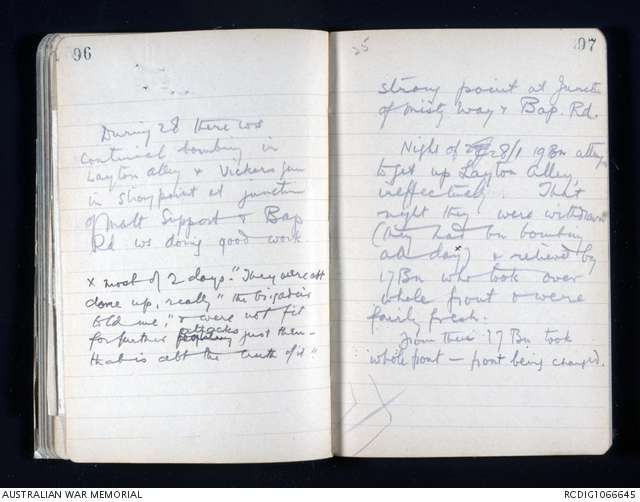 96
During 28 there was
continual bombing in
Layton Alley & Vickers gun
in strongpoint at junction
of Malt Support & Bap
Rd ws doing good work
x most of 2 days. "They were abt
done up, really," the brigadier
told me, "& were not fit
for further attacks just then -
that is abt the truth of it"
25
97
strong point at Junctn
of Misty Way & Bap. Rd.
Night of 28/1 19 Bn attempts
to get up Layton Alley,
ineffectively. That
night they were withdrawn
(they had bn bombing
all day)x & relieved by
17 Bn who took over
whole front & were
fairly fresh.
From there 17 Bn took
whole front - front being changed.
AUSTRALIAN WAR MEMORIAL
RCDIG1066645